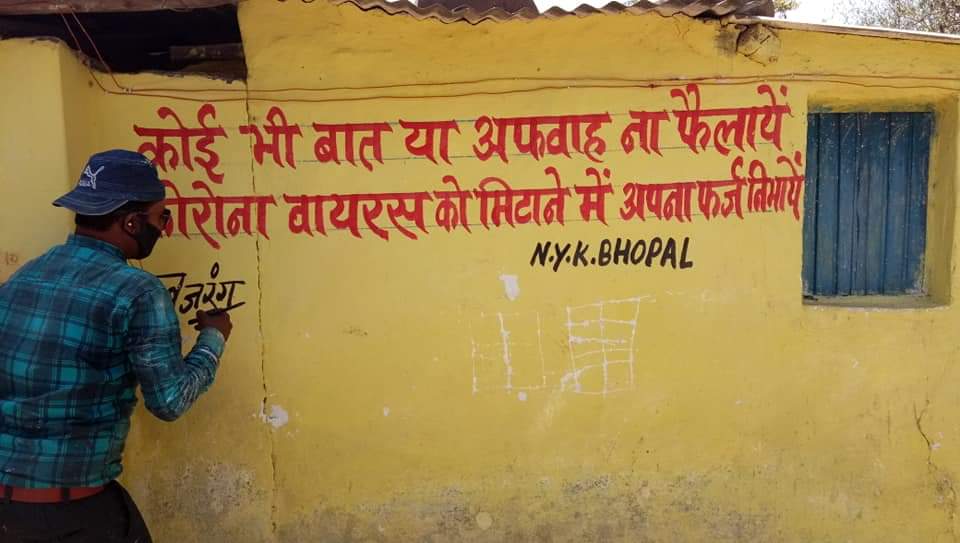 कोई भी बात या अफवाह ना फैलायें
कोरोना वायरस को मिटाने में अपना फर्ज निभायें
N.Y.K.BHOPAL